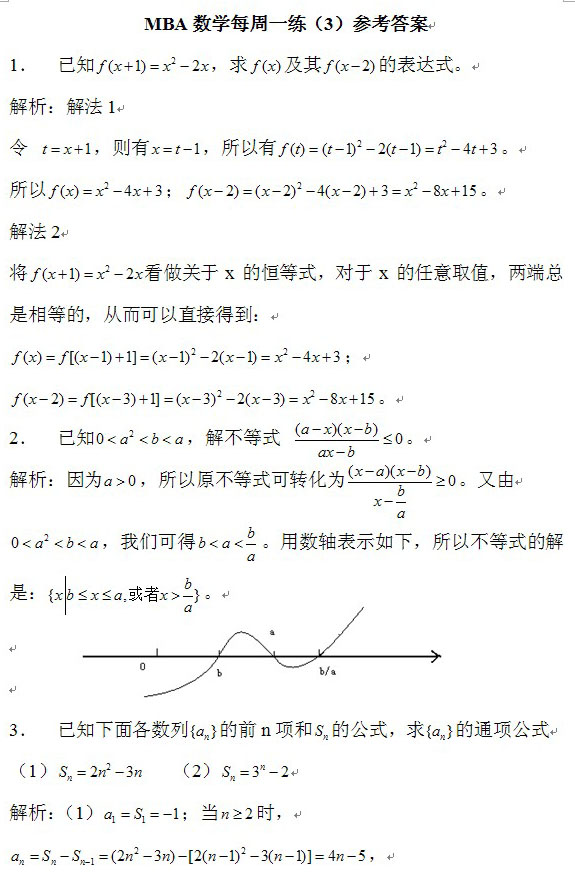 MBA 数学每周一练（3）参考答案
1. 已知f(x+1)=x²−2x，求f(x)及其f(x−2)的表达式。
解析：解法1
令 t=x+1，则有x=t−1，所以有f(t)=(t−1)²−2(t−1)=t²−4t+3。
所以f(x)=x²−4x+3；f(x−2)=(x−2)²−4(x−2)+3=x²−8x+15。
解法2
将f(x+1)=x²−2x看做关于 x 的恒等式，对于 x 的任意取值，两端总
是相等的，从而可以直接得到：
f(x)=f[(x−1)+1]=(x−1)²−2(x−1)=x²−4x+3；
f(x−2)=f[(x−3)+1]=(x−3)²−2(x−3)=x²−8x+15。
2. 已知0<a²<b<a，解不等式 (a−x)(x−b)/(ax−b)≤0。
解析：因为a>0，所以原不等式可转化为(x−a)(x−b)/(x−b/a)≥0。又由
0<a²<b<a，我们可得b<a<b/a。用数轴表示如下，所以不等式的解
是：{x|b≤x≤a,或者x>b/a}。
0 b a b/a
3. 已知下面各数列{aₙ}的前 n 项和Sₙ的公式，求{aₙ}的通项公式
（1）Sₙ=2n²−3n （2）Sₙ=3ⁿ−2
解析：（1）a₁=S₁=−1；当n≥2时，
aₙ=Sₙ−Sₙ₋₁=(2n²−3n)−[2(n−1)²−3(n−1)]=4n−5，